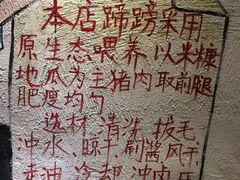 本店蹄膀采用
原生态喂养以米糠
地瓜为主猪肉取前腿
肥瘦均匀
选材、清洗、拔毛、
冲水、晾干、刷酱、风干、
冲油